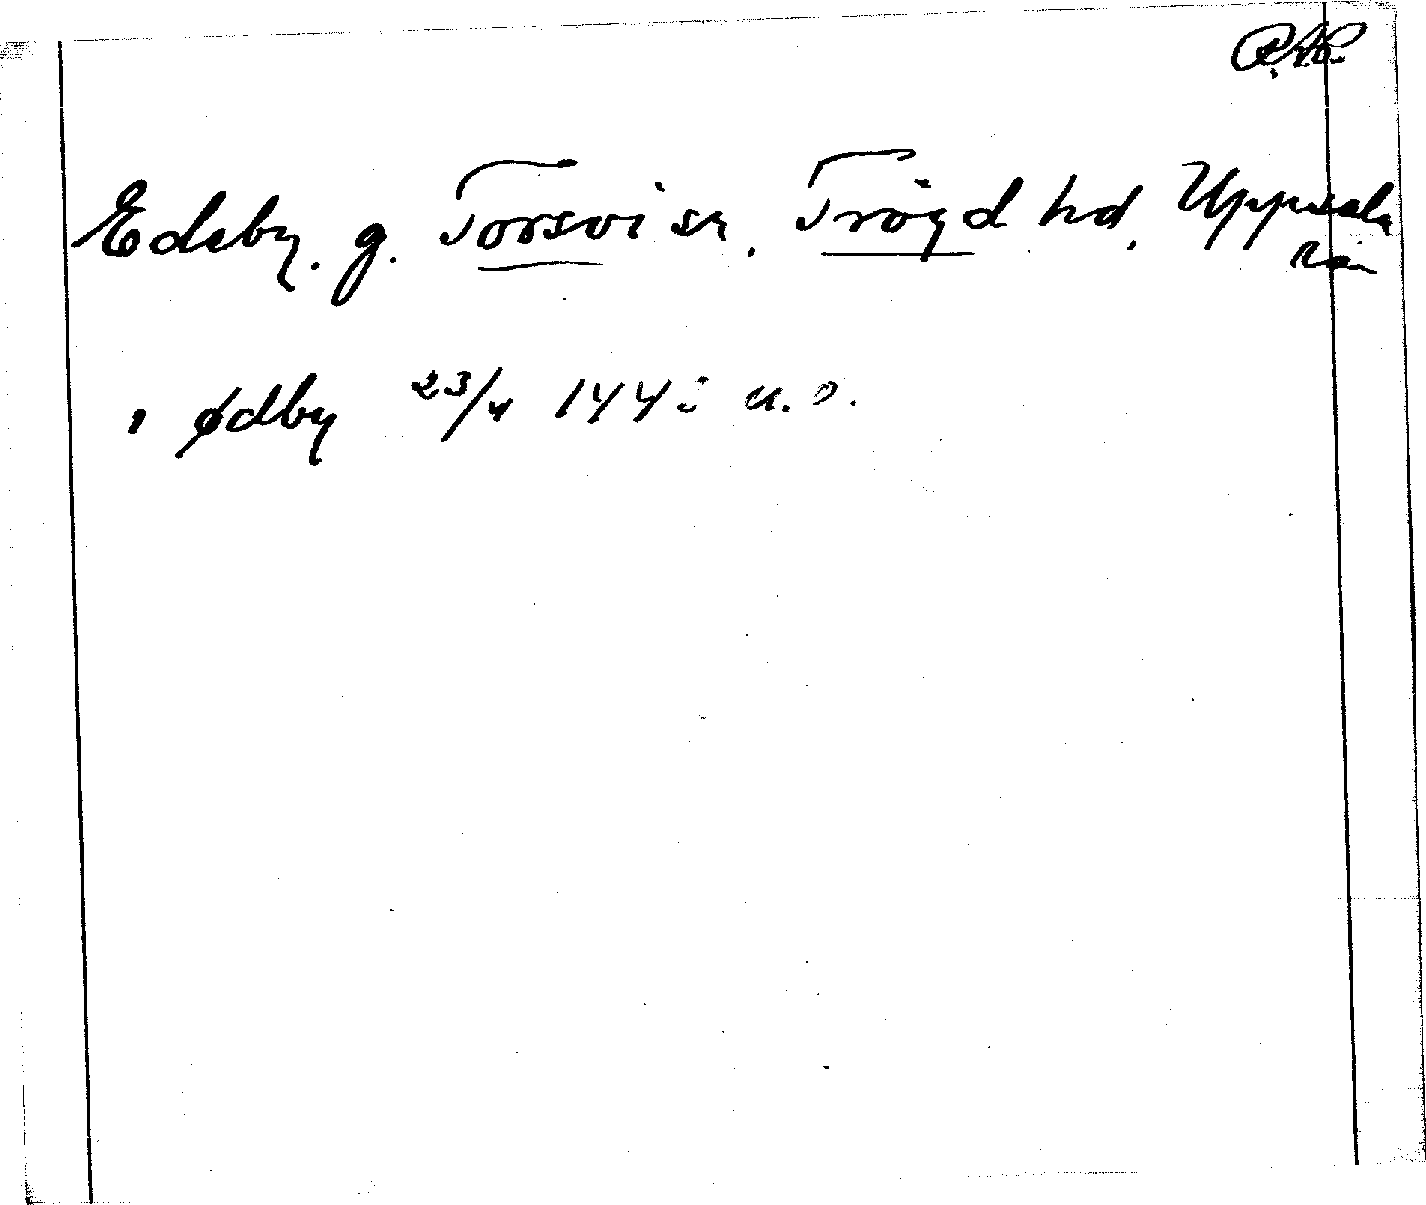 R.A.P.
Edeby. g. Torsvi sn. Trögd hd. Uppsala
län
, ødby 23/4 144 u. o.